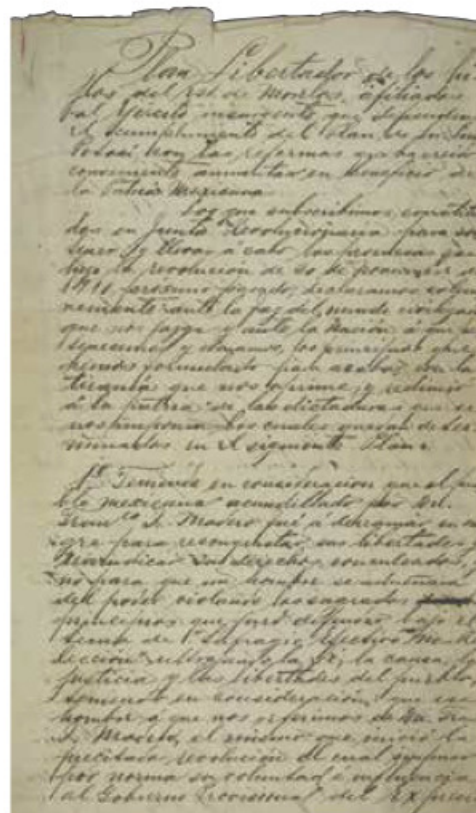 Plan Libertador de los hi
jos del Est. de Morelos, afiliados
al Ejército insurgente que defienden
el cumplimiento del Plan de San Luis
Potosí, con las reformas que ha creido
conveniente aumentar en beneficio de
la Patria Mexicana
Los que subscribimos, constitui
dos en Junta Revolucionaria para sos
tener y llevar á cabo las promesas que
hizo la revolución de 20 de Noviembre de
1910, próximo pasado, declaramos solem
nemente ante la faz del mundo civilizado
que nos juzga y ante la Nación á que
pertenecemos y amamos, los principios que
hemos formulado para acabar con la
tiranía que nos oprime y redimir
á la patria de las dictaduras que se
nos imponen los cuales quedan deter
minados en el siguiente Plan:
1º Teniendo en consideración que el pue
blo mexicano acaudillado por Dn.
Franco I. Madero fué á derramar su san
gre para reconquistar sus libertades y
reivindicar sus derechos conculcados, y
no para que un hombre se adueñara
del poder violando los sagrados
principios que juró defender bajo el
lema de "Sufragio Efectivo" "No Re
elección" ultrajando la fé, la causa, la
justicia y las libertades del pueblo,
teniendo en consideración: que ese
hombre á que nos referimos es Dn. Fco
I. Madero, el mismo que inició la
precitada revolución el cual impuso
por norma su voluntad é influencia
al Gobierno Provisional del Ex Presi